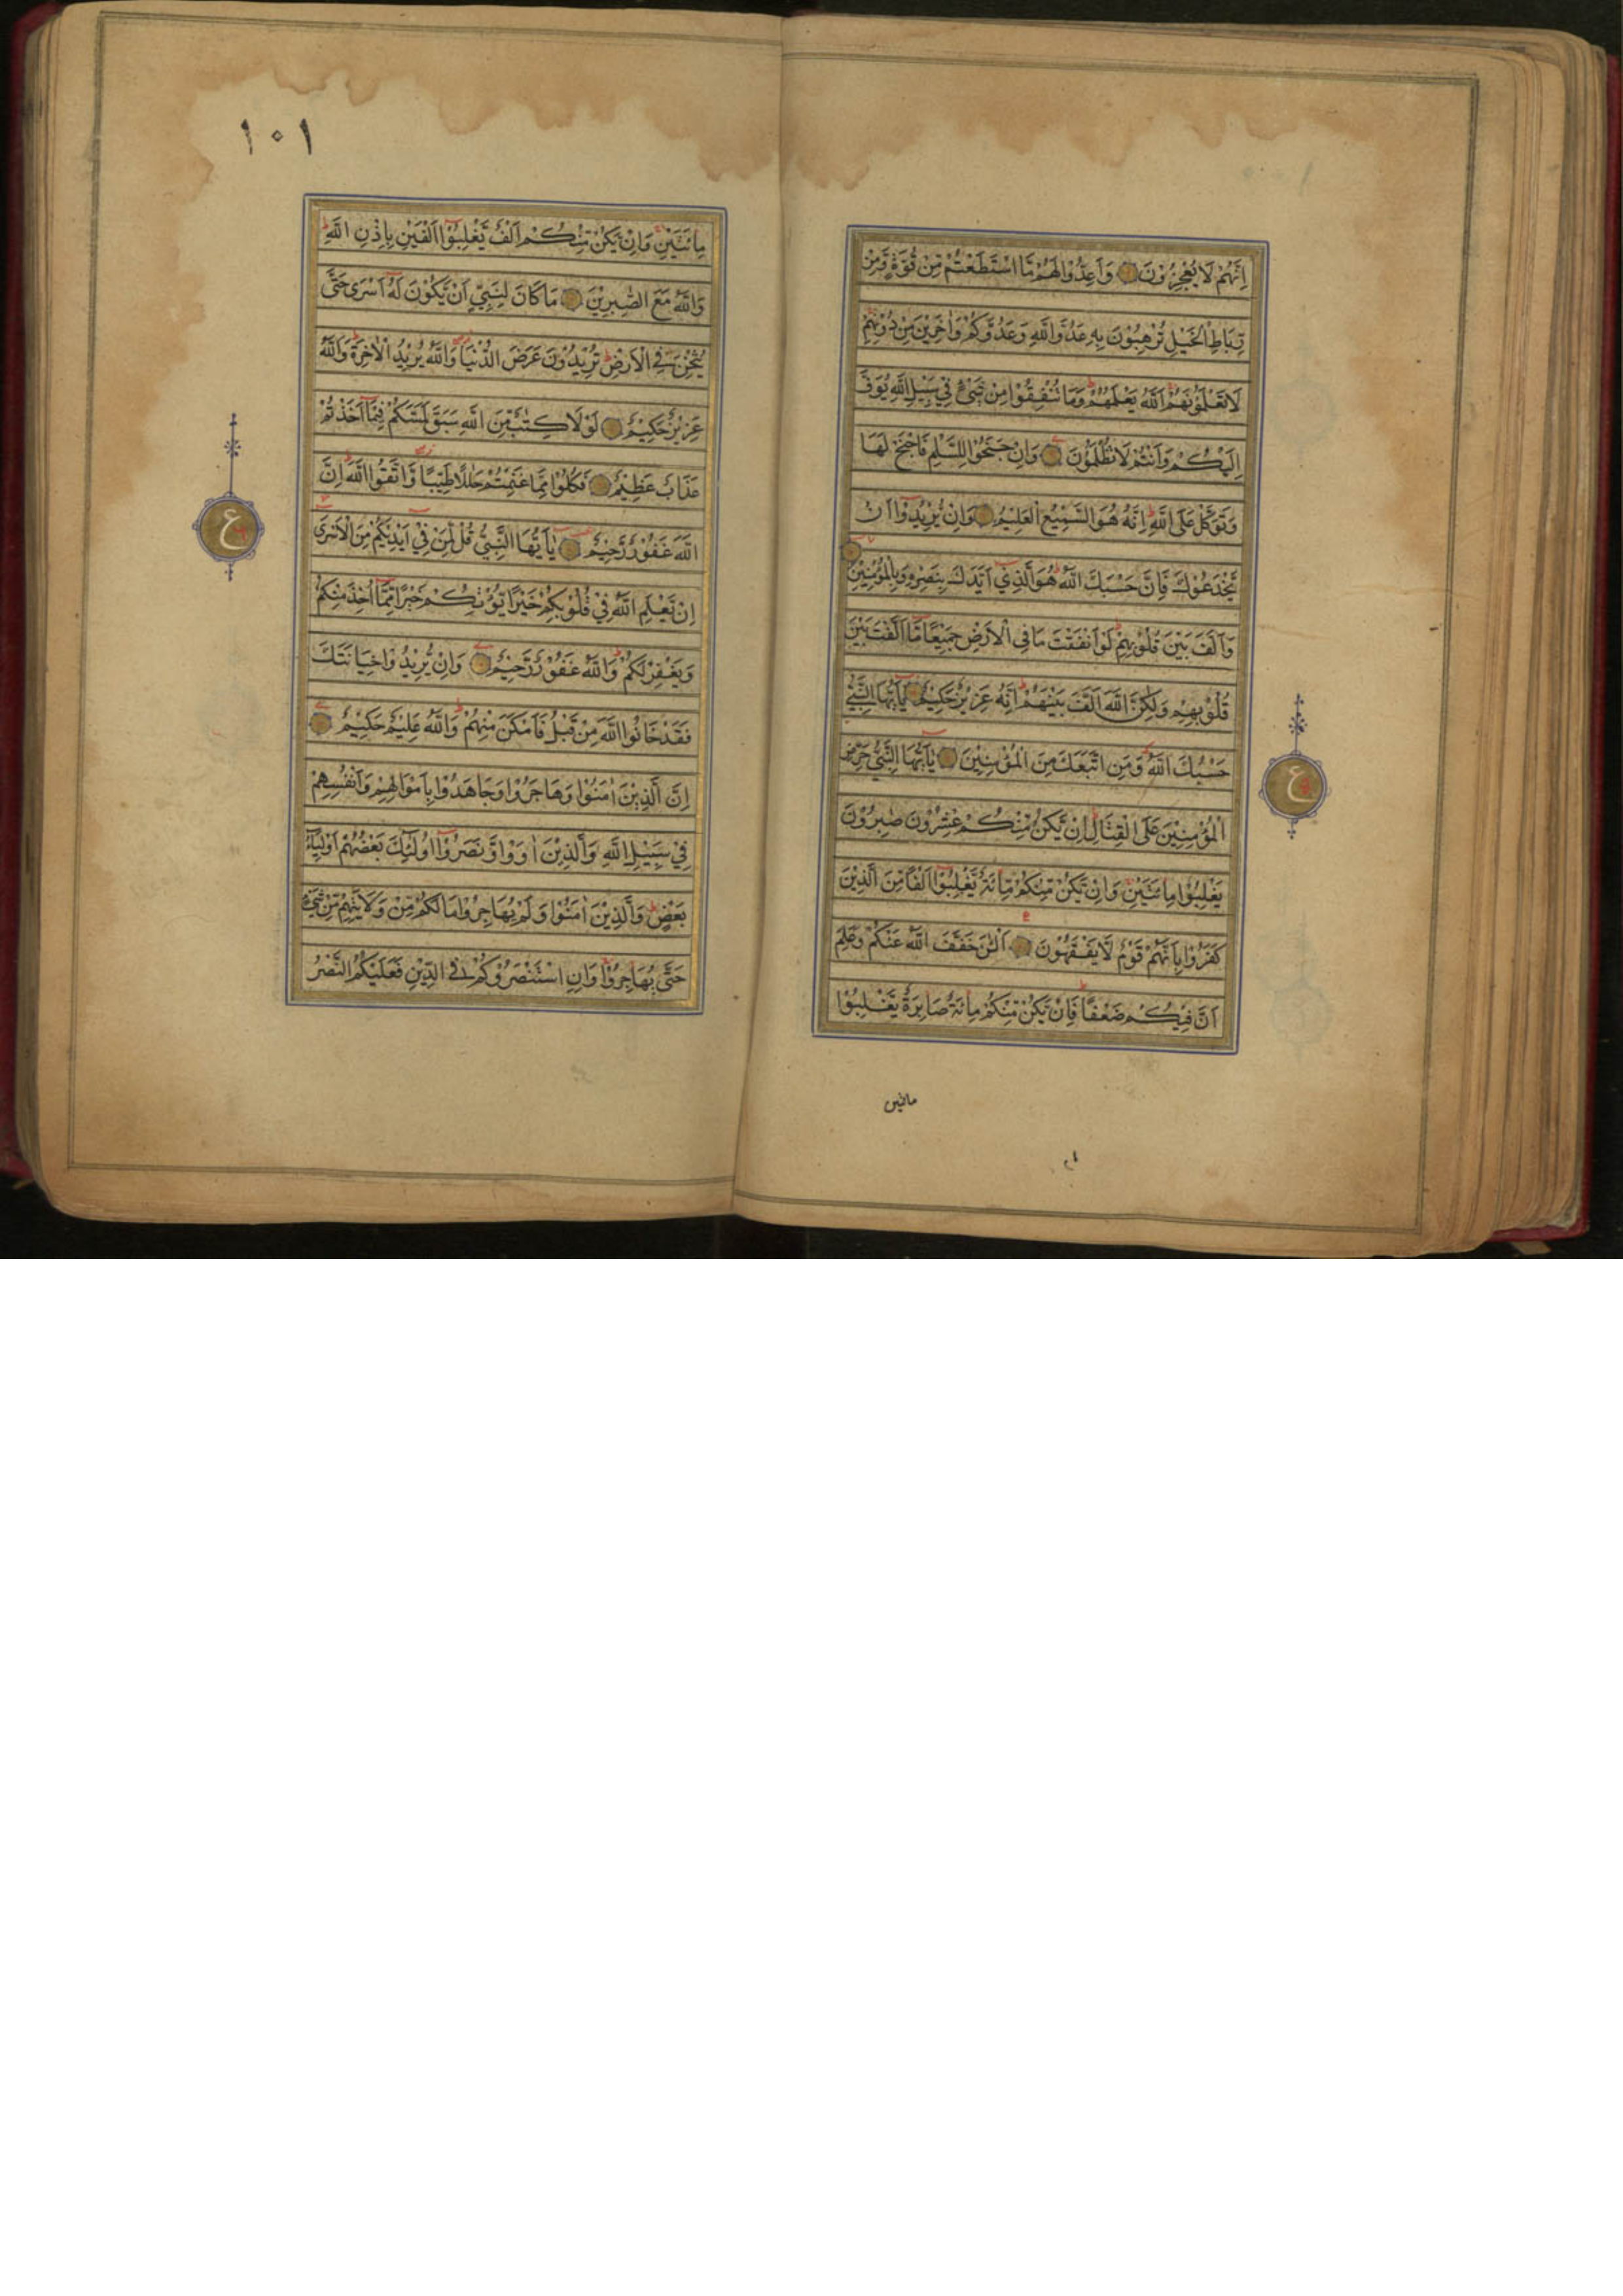 اِنَّهُمْ لَا يُعْجِزُوْنَ وَاَعِدُّوْا لَهُمْ مَّا اسْتَطَعْتُمْ مِّنْ قُوَّةٍ وَّمِنْ
رِّبَاطِ الْخَيْلِ تُرْهِبُوْنَ بِهٖ عَدُوَّ اللّٰهِ وَعَدُوَّكُمْ وَاٰخَرِيْنَ مِنْ دُوْنِهِمْ
لَا تَعْلَمُوْنَهُمْ اَللّٰهُ يَعْلَمُهُمْ وَمَا تُنْفِقُوْا مِنْ شَيْءٍ فِيْ سَبِيْلِ اللّٰهِ يُوَفَّ
اِلَيْكُمْ وَاَنْتُمْ لَا تُظْلَمُوْنَ وَاِنْ جَنَحُوْا لِلسَّلْمِ فَاجْنَحْ لَهَا
وَتَوَكَّلْ عَلَى اللّٰهِ اِنَّهٗ هُوَ السَّمِيْعُ الْعَلِيْمُ وَاِنْ يُّرِيْدُوْٓا اَنْ
يَّخْدَعُوْكَ فَاِنَّ حَسْبَكَ اللّٰهُ هُوَ الَّذِيْٓ اَيَّدَكَ بِنَصْرِهٖ وَبِالْمُؤْمِنِيْنَ
وَاَلَّفَ بَيْنَ قُلُوْبِهِمْ لَوْ اَنْفَقْتَ مَا فِي الْاَرْضِ جَمِيْعًا مَّآ اَلَّفْتَ بَيْنَ
قُلُوْبِهِمْ وَلٰكِنَّ اللّٰهَ اَلَّفَ بَيْنَهُمْ اِنَّهٗ عَزِيْزٌ حَكِيْمٌ يٰٓاَيُّهَا النَّبِيُّ
حَسْبُكَ اللّٰهُ وَمَنِ اتَّبَعَكَ مِنَ الْمُؤْمِنِيْنَ يٰٓاَيُّهَا النَّبِيُّ حَرِّضِ
الْمُؤْمِنِيْنَ عَلَى الْقِتَالِ اِنْ يَّكُنْ مِّنْكُمْ عِشْرُوْنَ صٰبِرُوْنَ
يَغْلِبُوْا مِائَتَيْنِ وَاِنْ يَّكُنْ مِّنْكُمْ مِّائَةٌ يَّغْلِبُوْٓا اَلْفًا مِّنَ الَّذِيْنَ
كَفَرُوْا بِاَنَّهُمْ قَوْمٌ لَّا يَفْقَهُوْنَ اَلْـٰٔنَ خَفَّفَ اللّٰهُ عَنْكُمْ وَعَلِمَ
اَنَّ فِيْكُمْ ضَعْفًا فَاِنْ يَّكُنْ مِّنْكُمْ مِّائَةٌ صَابِرَةٌ يَّغْلِبُوْا
مائتين
ع
١٠١
مِائَتَيْنِ وَاِنْ يَّكُنْ مِّنْكُمْ اَلْفٌ يَّغْلِبُوْٓا اَلْفَيْنِ بِاِذْنِ اللّٰهِ
وَاللّٰهُ مَعَ الصّٰبِرِيْنَ مَا كَانَ لِنَبِيٍّ اَنْ يَّكُوْنَ لَهٗٓ اَسْرٰى حَتّٰى
يُثْخِنَ فِي الْاَرْضِ تُرِيْدُوْنَ عَرَضَ الدُّنْيَا وَاللّٰهُ يُرِيْدُ الْاٰخِرَةَ وَاللّٰهُ
عَزِيْزٌ حَكِيْمٌ لَوْلَا كِتٰبٌ مِّنَ اللّٰهِ سَبَقَ لَمَسَّكُمْ فِيْمَآ اَخَذْتُمْ
عَذَابٌ عَظِيْمٌ فَكُلُوْا مِمَّا غَنِمْتُمْ حَلٰلًا طَيِّبًا وَّاتَّقُوا اللّٰهَ اِنَّ
اللّٰهَ غَفُوْرٌ رَّحِيْمٌ يٰٓاَيُّهَا النَّبِيُّ قُلْ لِّمَنْ فِيْٓ اَيْدِيْكُمْ مِّنَ الْاَسْرٰى
اِنْ يَّعْلَمِ اللّٰهُ فِيْ قُلُوْبِكُمْ خَيْرًا يُّؤْتِكُمْ خَيْرًا مِّمَّآ اُخِذَ مِنْكُمْ
وَيَغْفِرْ لَكُمْ وَاللّٰهُ غَفُوْرٌ رَّحِيْمٌ وَاِنْ يُّرِيْدُوْا خِيَانَتَكَ
فَقَدْ خَانُوا اللّٰهَ مِنْ قَبْلُ فَاَمْكَنَ مِنْهُمْ وَاللّٰهُ عَلِيْمٌ حَكِيْمٌ
اِنَّ الَّذِيْنَ اٰمَنُوْا وَهَاجَرُوْا وَجَاهَدُوْا بِاَمْوَالِهِمْ وَاَنْفُسِهِمْ
فِيْ سَبِيْلِ اللّٰهِ وَالَّذِيْنَ اٰوَوْا وَّنَصَرُوْٓا اُولٰٓئِكَ بَعْضُهُمْ اَوْلِيَآءُ
بَعْضٍ وَالَّذِيْنَ اٰمَنُوْا وَلَمْ يُهَاجِرُوْا مَا لَكُمْ مِّنْ وَّلَايَتِهِمْ مِّنْ شَيْءٍ
حَتّٰى يُهَاجِرُوْا وَاِنِ اسْتَنْصَرُوْكُمْ فِي الدِّيْنِ فَعَلَيْكُمُ النَّصْرُ
ع